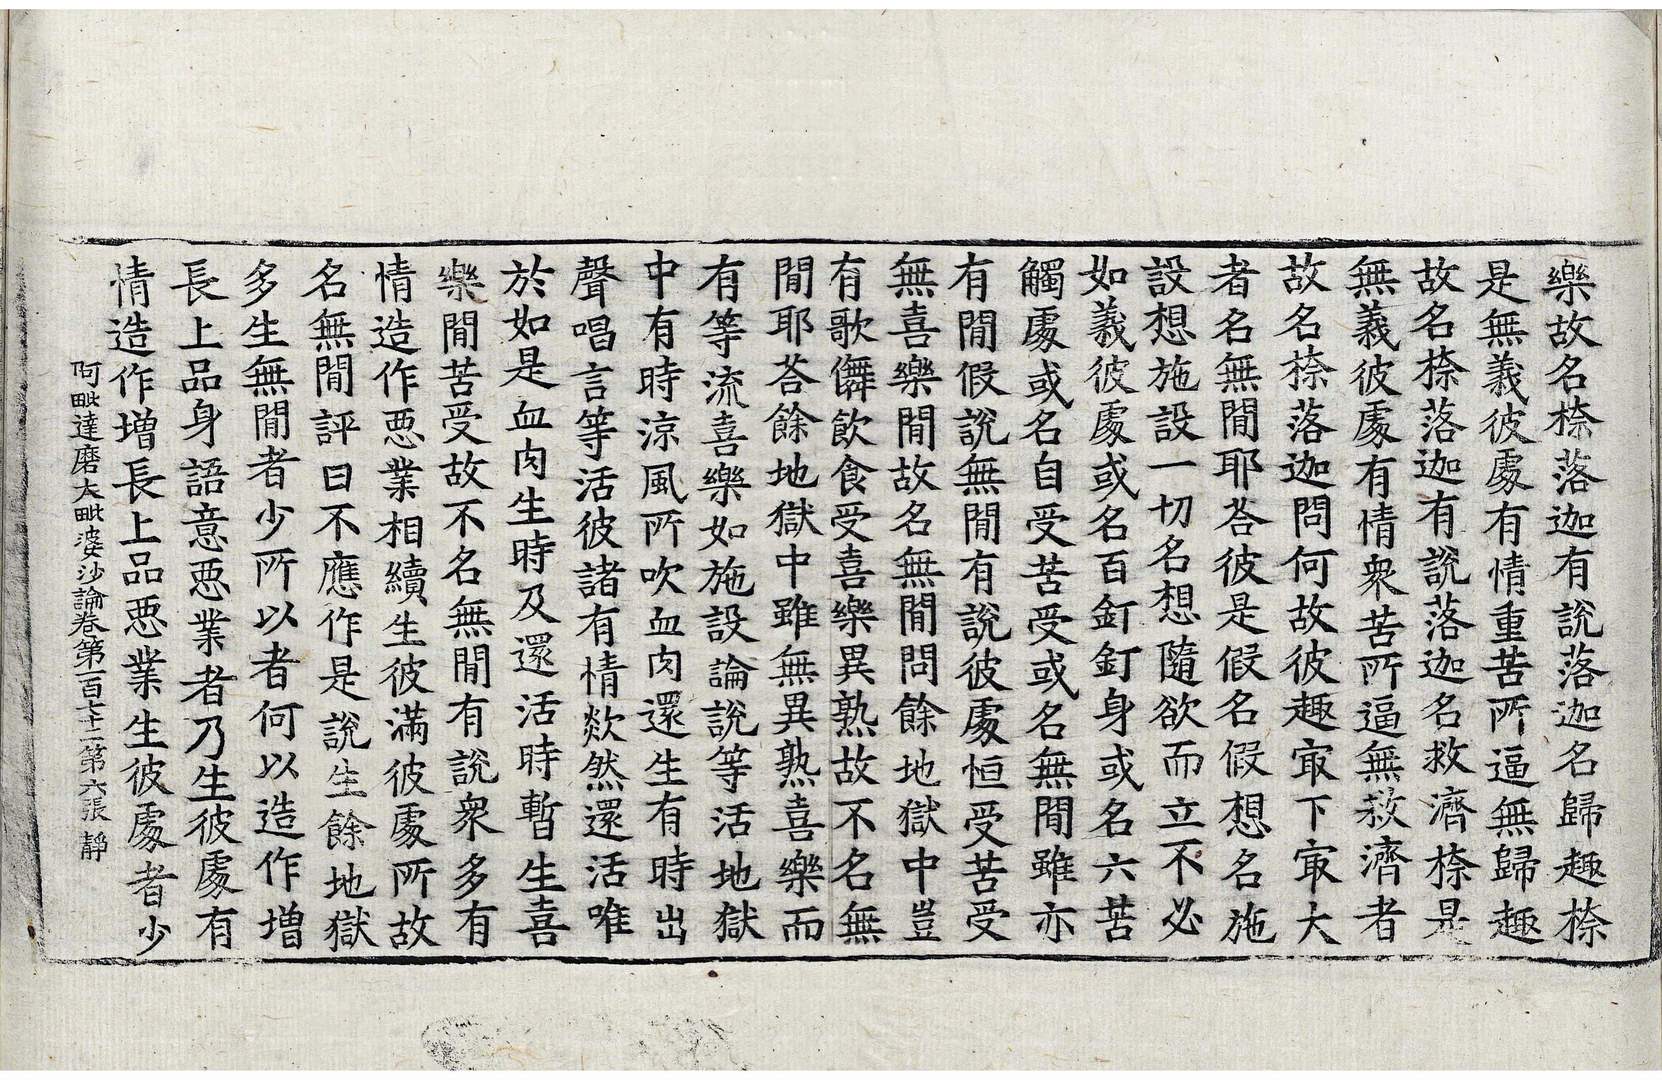 樂故名㮈落迦有說落迦名歸趣㮈
是無義彼處有情重苦所逼無歸趣
故名㮈落迦有說落迦名救濟㮈是
無義彼處有情衆苦所逼無救濟者
故名㮈落迦問何故彼趣㝡下㝡大
者名無閒耶荅彼是假名假想名施
設想施設一切名想隨欲而立不必
如義彼處或名百釘釘身或名六苦
觸處或名自受苦受或名無閒雖亦
有閒假說無閒有說彼處恒受苦受
無喜樂閒故名無閒問餘地獄中豈
有歌儛飲食受喜樂異熟故不名無
閒耶荅餘地獄中雖無異熟喜樂而
有等流喜樂如施設論說等活地獄
中有時涼風所吹血肉還生有時出
聲唱言等活彼諸有情欻然還活唯
於如是血肉生時及還活時暫生喜
樂閒苦受故不名無閒有說衆多有
情造作惡業相續生彼滿彼處所故
名無閒評曰不應作是說生餘地獄
多生無閒者少所以者何以造作增
長上品身語意惡業者乃生彼處有
情造作增長上品惡業生彼處者少
阿毗達磨大毗婆沙論卷第一百七十二 第六張 靜